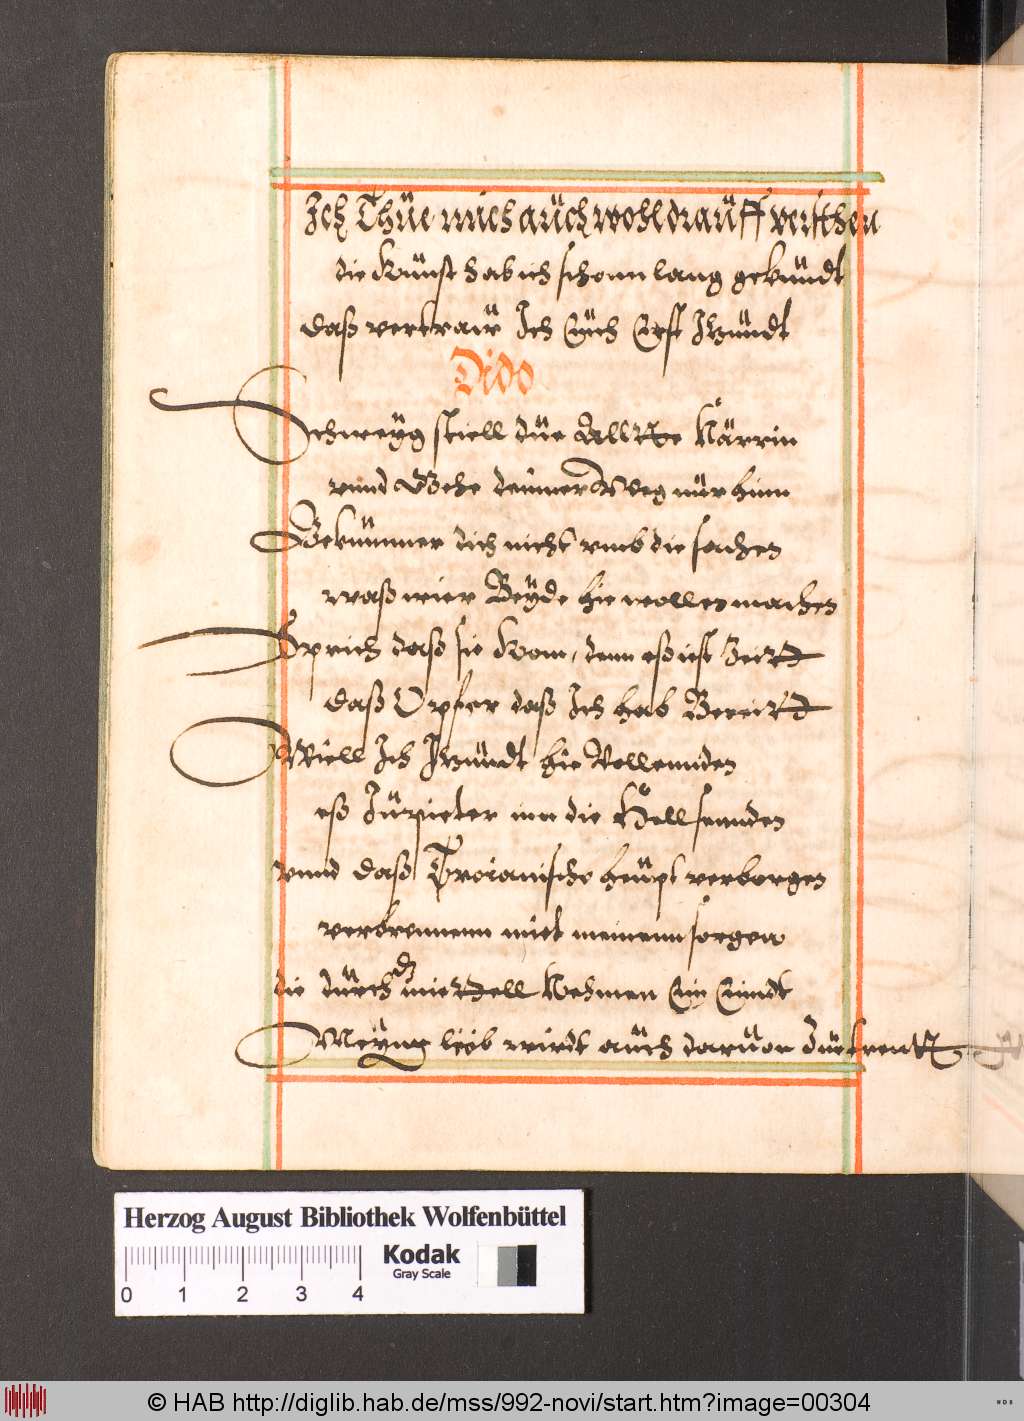 Ich Thüe mich aüch wohl drauff versthen
die Künst hab ich schonn lang gekündt
daß vertraüw Ich Eüch Erst Itzündt
Dido
Schweÿg stiell düe Allte Närrin
vnnd Gehe deinner Weg nür hinn
Bekümmer dich nicht vmb die sachen
waß wier Beÿde hie wollen machen
Sprich daß sie kom, denn eß ist Zeitt
daß Opfer daß Ich hab Bereitt
Wiell Ich Itzündt hie Vollennden
eß Jüpieter inn die Höll sennden
vnnd daß Troianische heüpt verborgen
verbrennenn miet meinenn sorgen
die dürch dz miettell Nehmen Ein Eündt
Meÿnn lieb wirdt aüch daruon
Herzog August Bibliothek Wolfenbüttel
Kodak
Gray Scale
0 1 2 3 4
© HAB http://diglib.hab.de/mss/992-novi/start.htm?image=00304